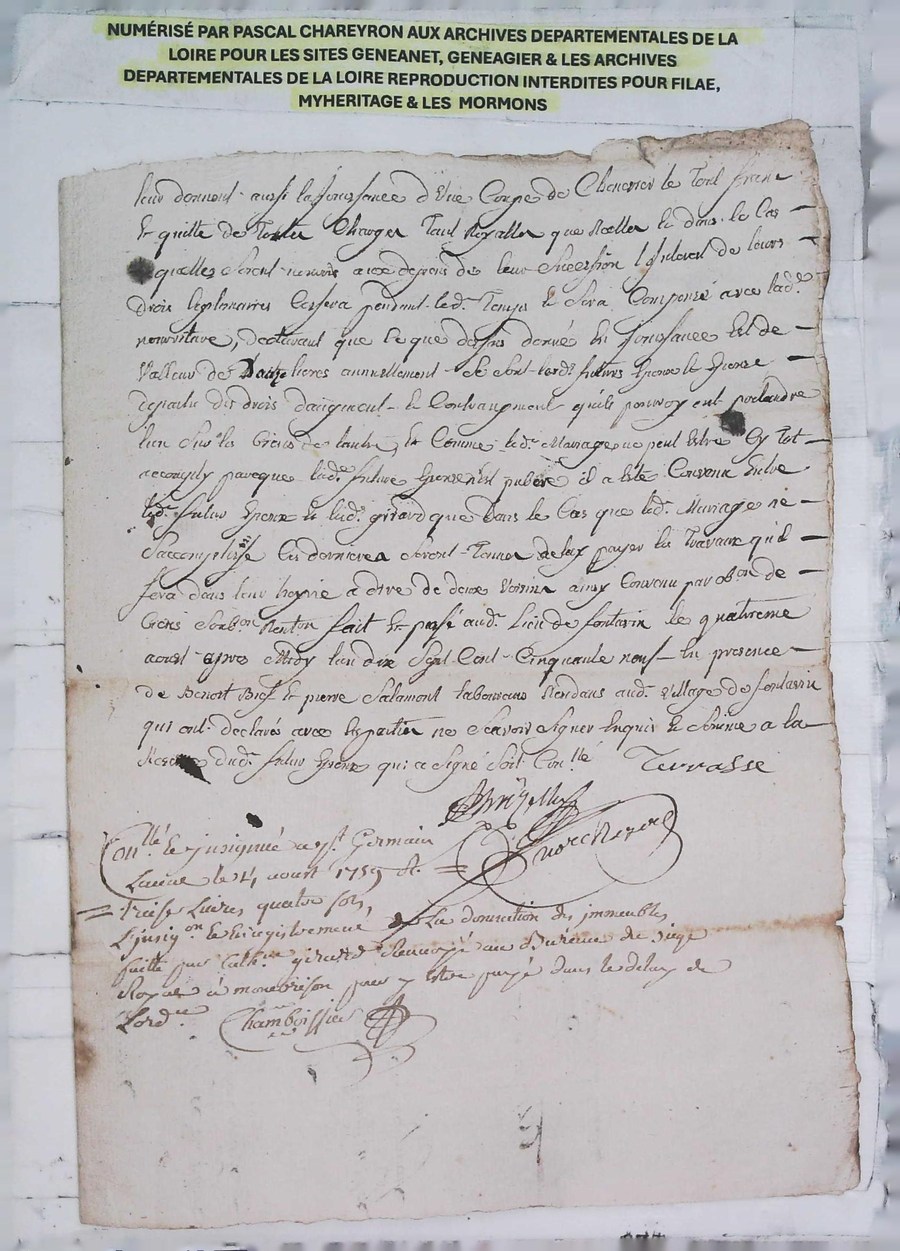 NUMÉRISÉ PAR PASCAL CHAREYRON AUX ARCHIVES DEPARTEMENTALES DE LA
LOIRE POUR LES SITES GENEANET, GENEAGIER & LES ARCHIVES
DEPARTEMENTALES DE LA LOIRE REPRODUCTION INTERDITES POUR FILAE,
MYHERITAGE & LES MORMONS
leur donnent aussi la Joüissance d'Une Coupe de Chenevier le Tout franc
Et quitte de Toutes Charges Tant Royalles que Reelles Et dans le Cas
quelles Seront nourris aux depens de leur Succession l'Interest de leurs
drois Cessera pendant led. Temps Et Sera Compensé avec lad.
nourriture, declarant que Ce que dessus donné En Jouissance Est de
Valleur de livres annuellement Se Sont lesds. futurs Epoux Et Epouse
departis des drois daugment Et Contraugment quils pouvoyent pretandre
lun Sur les biens de lautre, Et Comme led. Mariage ne peut Estre Sy Tot
accomply parceque lad. future Epouse n'Est pubere il a Esté Convenu Entre
led. futur Epoux Et lad. girard que dans le Cas que led. Mariage ne
Saccomplisse Ces derniers Seront Tenus de luy payer les Travaux quil
fera dans leur a dire de deux Voisins ainsy Convenu par obon. de
biens fait Et passé aud. Lieu de fontavin le quatrieme
aoust apres Midy lan dix Sept Cent Cinquante neuf En presence
de Benoit Et pierre Salamont laboureurs Residans aud. Village de fontavin
qui ont declarés avec les parties ne Scavoir Signer Enquis Et Sommé a la
Reserve dud. futur Epoux qui a Signé Soit Conllé Terrasse
Conllé. Et jnsignué a St. Germain
Laval le 4 aoust 1759 R.
Treise Livres quatre Sols,
L'jnsigon. Et Enregistrement de La donnation des jmmeubles
faitte par Cathne. girard Renvoyé au Bureau du Siege
Royal à monbrison pour y Estre payé dans le delay de
Lordce
Chamboissier